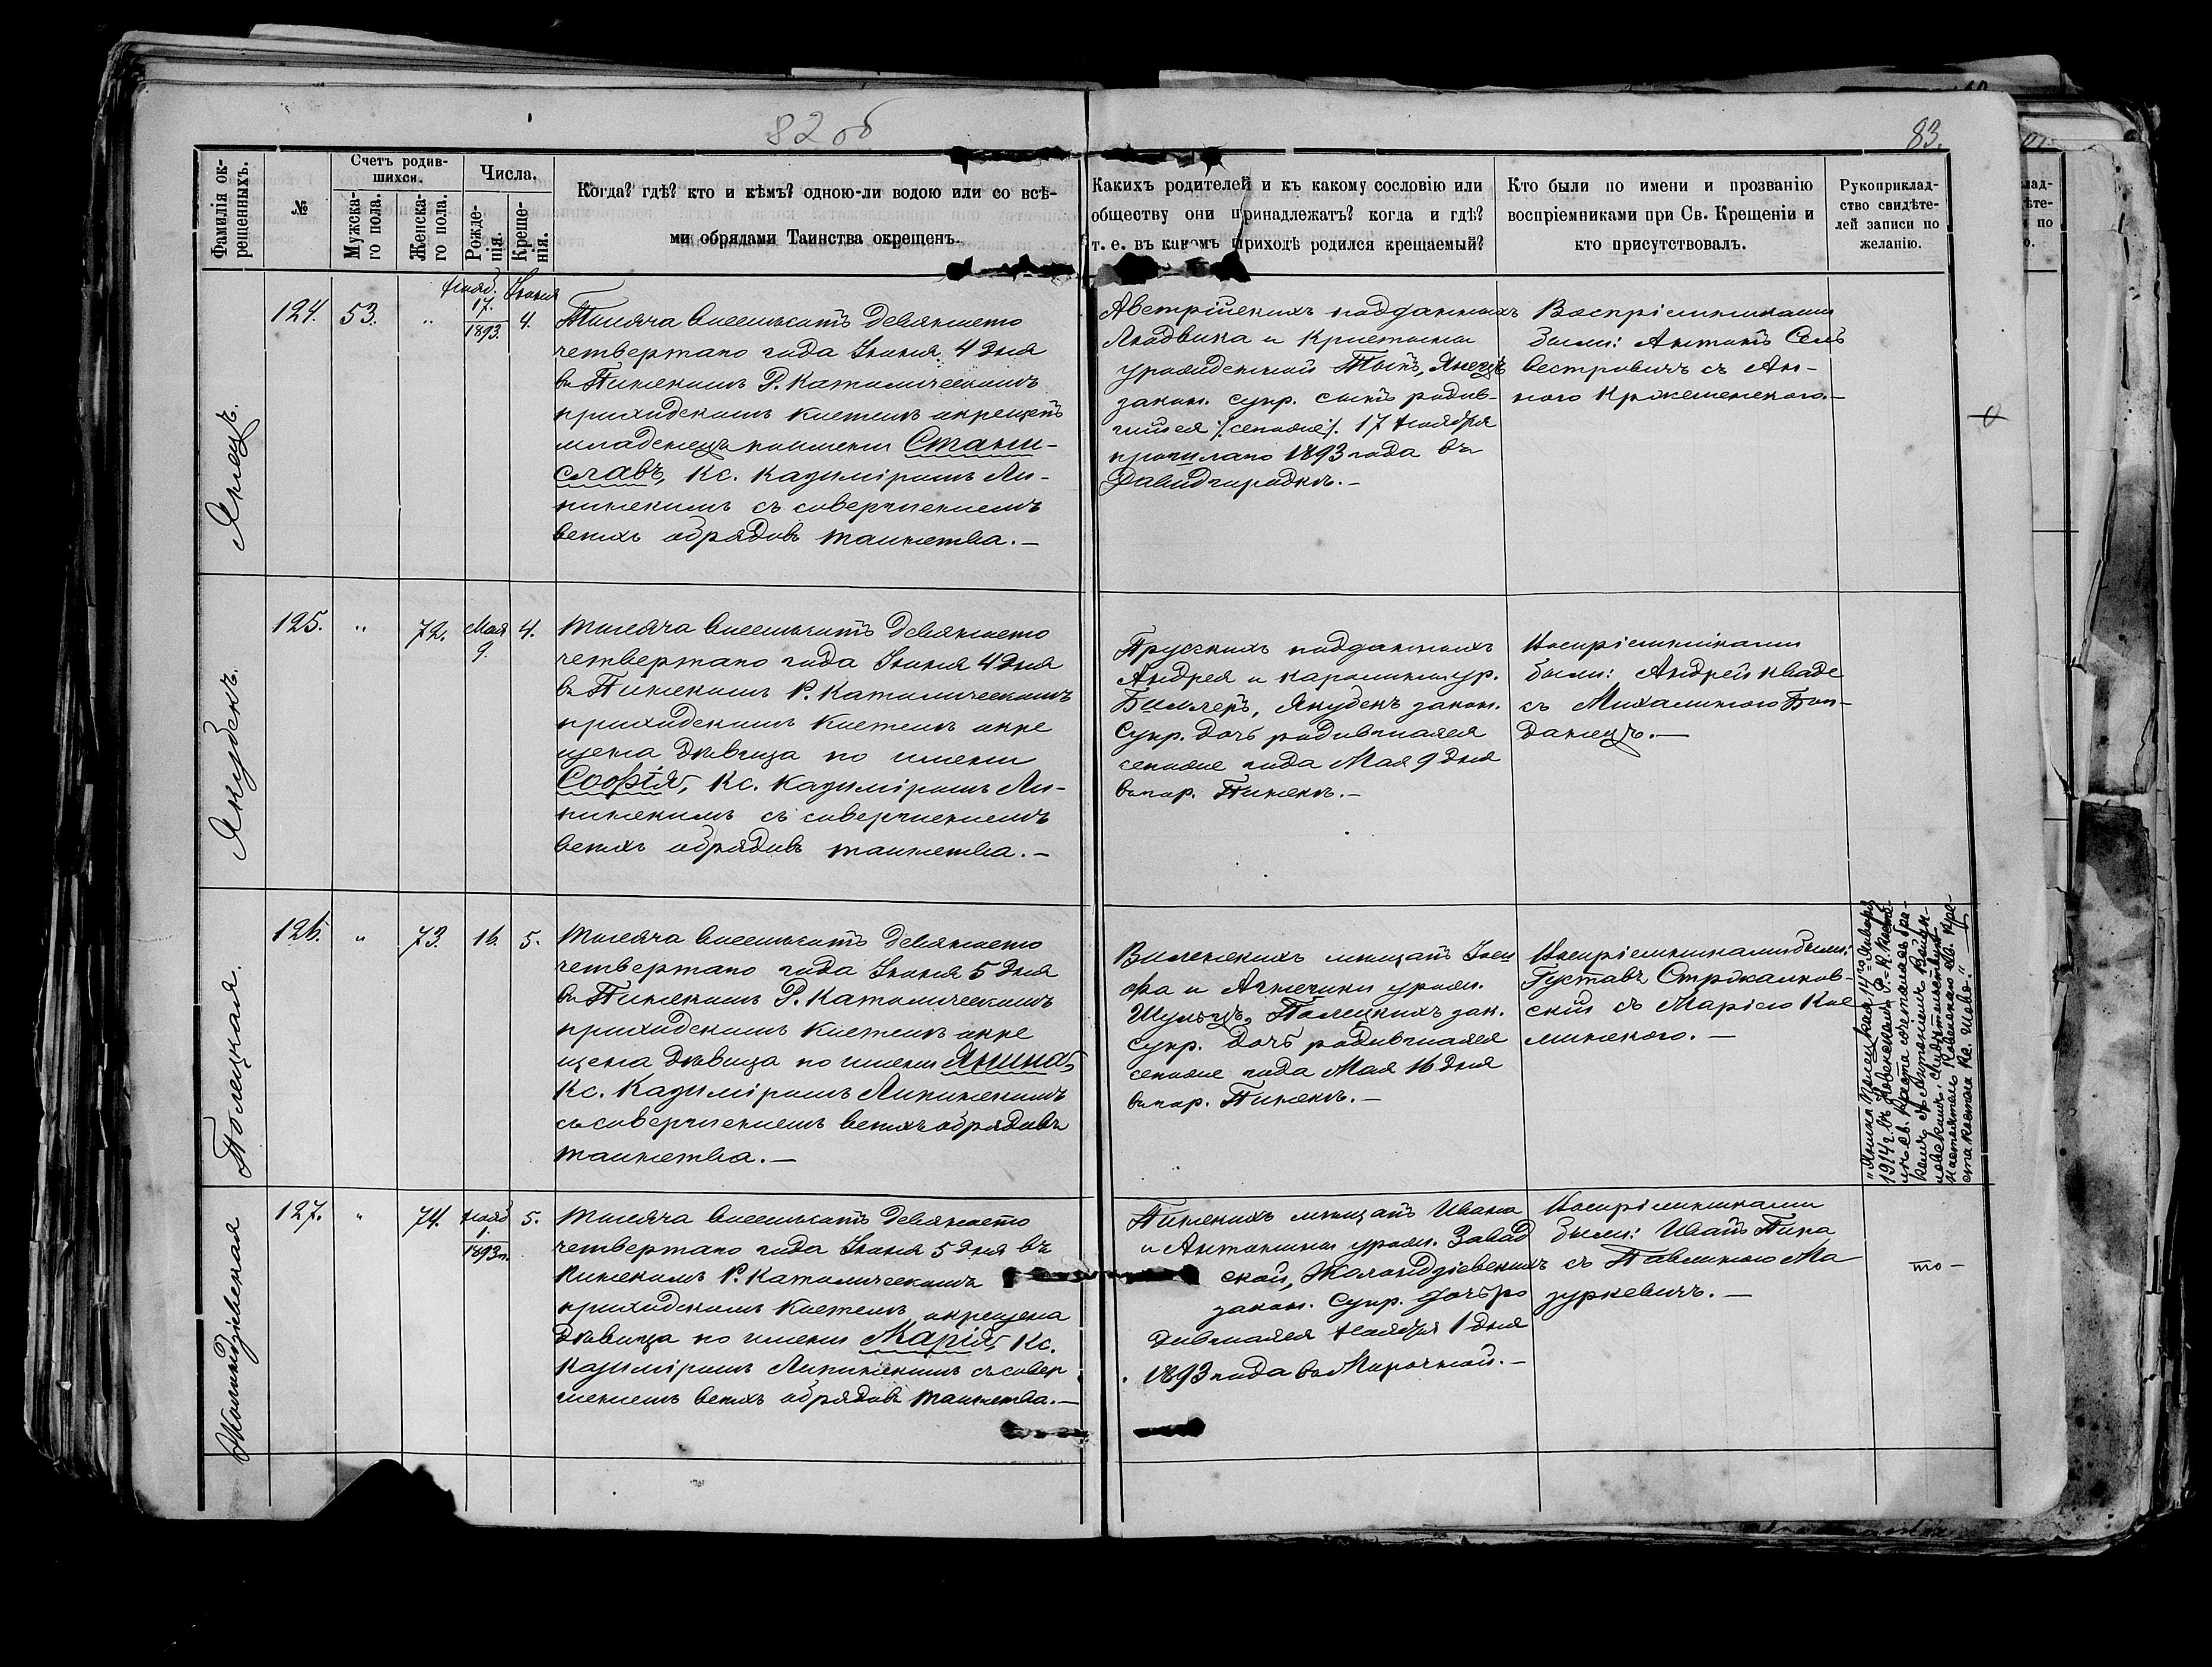 82 об
83.
Фамилія ок-
рещенныхъ.
№
Счетъ родив-
шихся.
Мужска-
го пола.
Женска-
го пола.
Числа.
Рожде-
нія.
Креще-
нія.
Когда? гдѣ? кто и кѣмъ? одною-ли водою или со всѣ-
ми обрядами Таинства окрещенъ.
Какихъ родителей и къ какому сословію или
обществу они принадлежатъ? когда и гдѣ?
т. е. въ какомъ приходѣ родился крещаемый?
Кто были по имени и прозванію
воспріемниками при Св. Крещеніи и
кто присутствовалъ.
Рукоприклад-
ство свидѣте-
лей записи по
желанію.
Янецъ.
124.
53.
"
Нояб.
17.
1893.
Іюня
4.
Тысяча восемьсотъ девяносто
четвертаго года Іюня 4 дня
въ Пинскомъ Р. Католическомъ
приходскомъ костелѣ окрещенъ
младенецъ по имени Стани-
славъ, Кс. Казиміромъ Ли-
пинскимъ съ совершеніемъ
всѣхъ обрядовъ таинства.—
Австрійскихъ подданныхъ
Людвика и Кристины
урожденной Тынъ, Янецъ
закон. супр. сынъ родив-
шійся /:сего же:/. 17 Ноября
прошлаго 1893 года въ
Давидгородкѣ.—
Воспріемниками
были: Антонъ Силь
вестровичъ съ Ан-
ною Кржеменскою.—
Якубекъ.
125.
"
72.
Мая
9.
4.
Тысяча восемьсотъ девяносто
четвертаго года Іюня 4 дня
въ Пинскомъ Р. Католическомъ
приходскомъ костелѣ окре
щена дѣвица по имени
Софія, Кс. Казиміромъ Ли-
пинскимъ съ совершеніемъ
всѣхъ обрядовъ таинства.—
Прусскихъ подданныхъ
Андрея и Каролины ур.
Якубекъ закон.
Супр. дочь родившаяся
сего же года Мая 9 дня
въ гор. Пинскѣ.—
Воспріемниками
были: Андрей Кваде
съ Михалиною Бог-
данецъ.—
Полецкая.
126.
"
73.
16.
5.
Тысяча восемьсотъ девяносто
четвертаго года Іюня 5 дня
въ Пинскомъ Р. Католическомъ
приходскомъ костелѣ окре
щена дѣвица по имени Янина,
Кс. Казиміромъ Липинскимъ
съ совершеніемъ всѣхъ обрядовъ
таинства.—
Виленскихъ мѣщанъ Іоси
фа и Агнешки урожд.
Шульцъ, Полецкихъ зак.
супр. дочь родившаяся
сего же года Мая 16 дня
въ гор. Пинскѣ.—
Воспріемниками были:
Густавъ Стржалков-
ский съ Маріею Кос
минскою.—
"Янина Полецкая 14го Января
1914 г. въ Ровенскомъ Р.-К. Косте-
лѣ св. сочеталась бра-
комъ съ Антономъ
свидѣтельствуетъ
Настоятель Ровенскаго
Жолондзіевская
127.
"
74.
Нояб
1.
1893 г.
5.
Тысяча восемьсотъ девяносто
четвертаго года Іюня 5 дня въ
Пинскомъ Р. Католическомъ
приходскомъ костелѣ окрещена
дѣвица по имени Марія, Кс.
Казиміромъ Липинскимъ съ совер
шеніемъ всѣхъ обрядовъ таинства.—
Пинскихъ мѣщанъ Ивана
и Антонины урожд. Завад
ской, Жолондзіевскихъ
закон. Супр. дочь ро
дившаяся Ноября 1 дня
1893 года въ Морочной.—
Воспріемниками
были: Иванъ Пика
съ Павлиною Ма
зуркевичъ.—